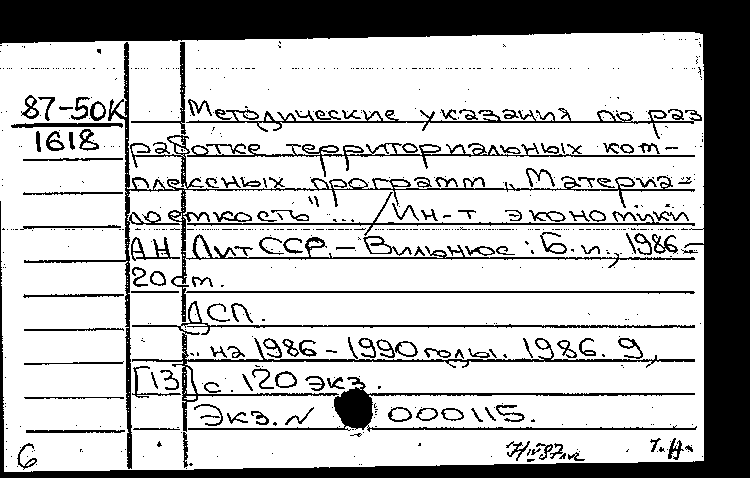 87-50К
1618
Методические указания по раз
работке территориальных ком-
плексных программ „Материа-
лоемкость"... / Ин-т экономики
АН ЛитССР. – Вильнюс : Б.и., 1986 –
20 см.
ДСП.
.. на 1986 – 1990 годы. 1986. 9,
[13] с. 120 экз.
Экз. N 000115.
6
Т.Н.